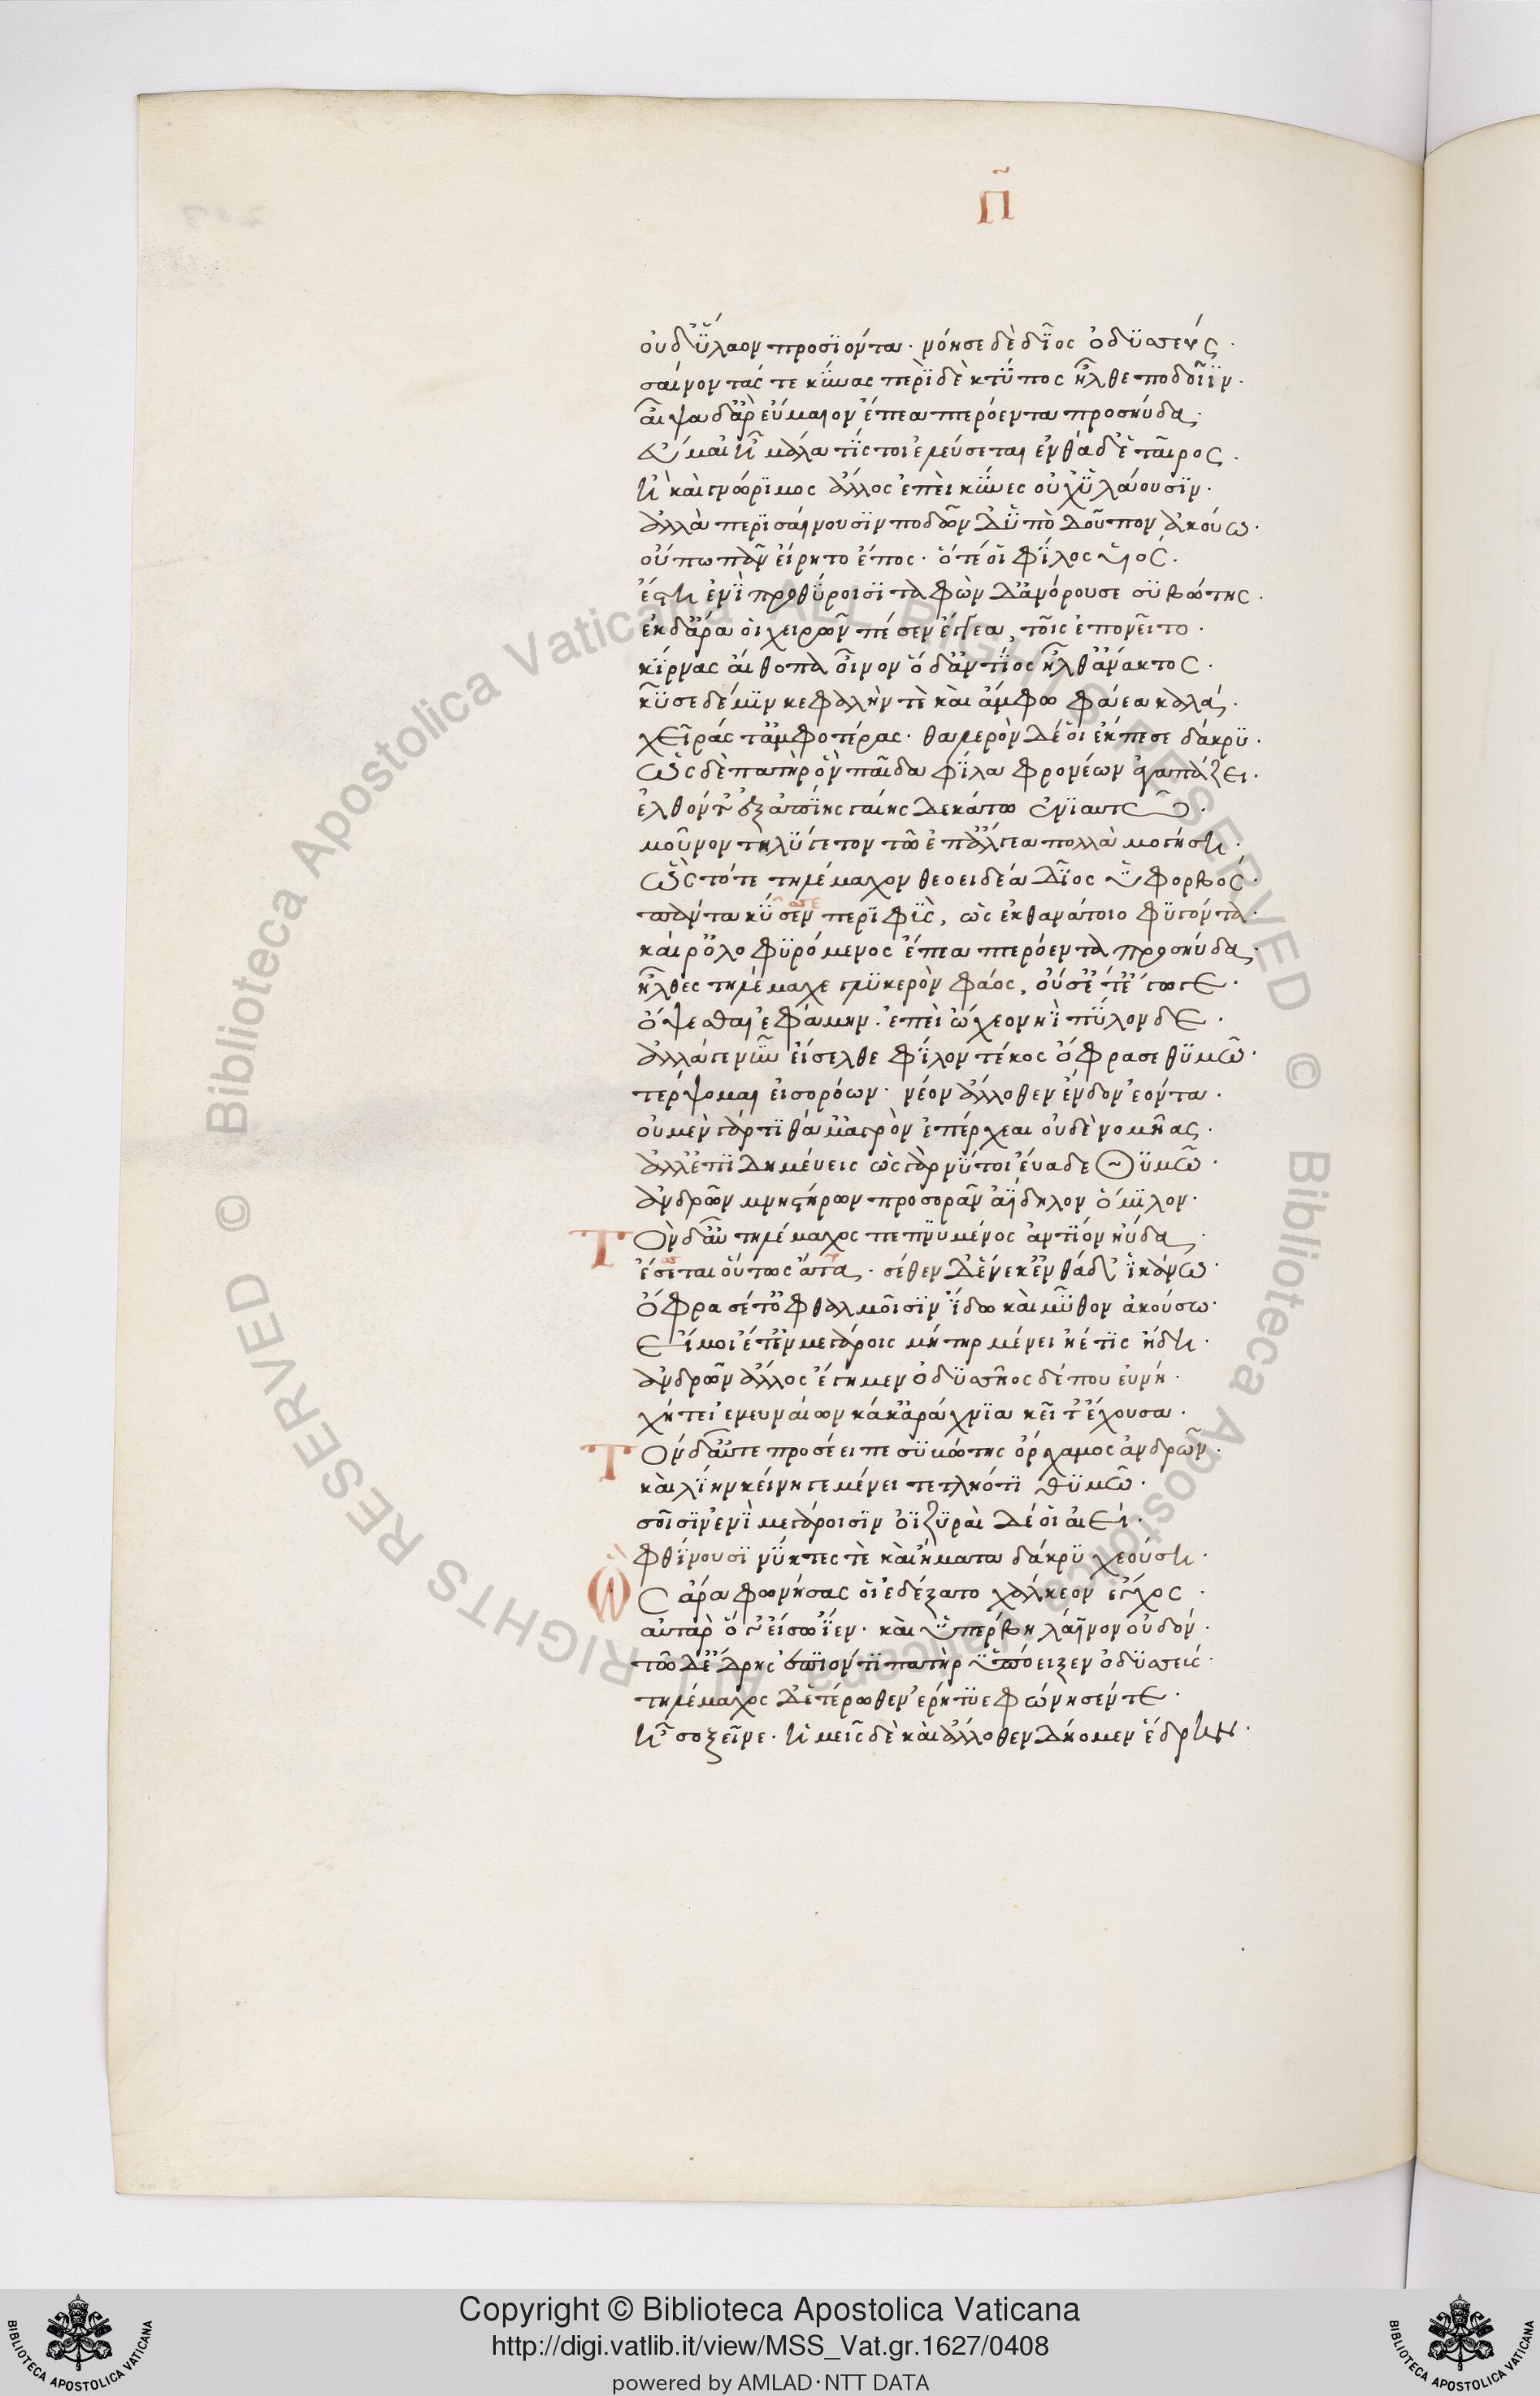 Π
οὐδ' ὕλαον προσϊόντα· νόησε δὲ δῖος ὀδϋσσεύς·
σαίνοντάς τε κύνας περὶ δὲ κτύπος ἦλθε ποδοῖϊν·
αἶψα δ' ἂρ εὔμαιον ἔπεα πτερόεντα προσηύδα·
εὔμαι' ἦ μάλα τίς τοι ἐλεύσεται ἐνθάδ' ἑταῖρος·
ἢ καὶ γνώριμος ἄλλος ἐπεὶ κύνες οὐχ ὑλάουσϊν·
ἀλλὰ περισαίνουσϊν ποδῶν δ' ὑπὸ δοῦπον ἀκούω·
οὔπω πᾶν εἴρητο ἔπος· ὅτέ οἱ φίλος υἱός·
ἔστη ἐνὶ προθύροισϊ ταφὼν δ' ἀνόρουσε συβώτης·
ἐκ δ' ἄρα οἱ χειρῶν πέσεν ἄγγεα, τοῖς ἐπονεῖτο·
κιρνὰς αἴθοπα οἶνον ὅ δ' ἀντίος ἦλθ' ἄνακτος·
κῦσε δέ μϊν κεφαλήν τὲ καὶ ἄμφω φάεα καλά·
χεῖράς τ' ἀμφοτέρας· θαλερὸν δέ οἱ ἔκπεσε δάκρυ·
ὡς δὲ πατὴρ ὃν παῖδα φίλα φρονέων ἀγαπάζει·
ἐλθόντ' ἐξ ἀπίης γαίης δεκάτω ἐνιαυτῶ·
μοῦνον τηλύγετον τῶ ἐπ' ἄλγεα πολλὰ μογήση·
ὣς τότε τηλέμαχον θεοειδέα δῖος ὑφορβός·
πάντα κύσεν περιφὺς, ὡς ἐκ θανάτοιο φυγόντα·
καί ρ' ὀλοφυρόμενος ἔπεα πτερόεντα προσηύδα·
ἦλθες τηλέμαχε γλυκερὸν φάος, οὔ σ' ἔτ' ἔγωγε·
ὄψεσθαι ἐφάμην· ἐπεὶ ὤχεο νηῒ πύλον δε·
ἀλλάγε νῦν εἴσελθε φίλον τέκος ὄφρα σε θυμῶ·
τέρψομαι εἰσορόων· νέον ἄλλοθεν ἔνδον ἐόντα·
οὐ μὲν γάρ τι θάμ' ἀγρὸν ἐπέρχεαι οὐδὲ νομῆας·
ἀλλ' ἐπιδημεύεις ὡς γάρ νύ τοι εὔαδε θυμῶ·
ἀνδρῶν μνηστήρων προσορᾶν ἀΐδηλον ὅμιλον·
Τὸν δ' αὖ τηλέμαχος πεπνυμένος ἀντίον ηὔδα·
ἔσσεται οὕτως ἄττα· σέθεν δ' ἕνεκ' ἐνθάδ' ἱκάνω·
ὄφρα σέ τ' ὀφθαλμοῖσϊν ἴδω καὶ μῦθον ἀκούσω·
εἴ μοι ἔτ' ἐν μεγάροις μήτηρ μένει ἠέ τις ἤδη·
ἀνδρῶν ἄλλος ἔγημεν ὀδυσσῆος δέ που εὐνή·
χήτει ἐνευναίων κάκ' ἀράχνια κεῖτ' ἔχουσα·
Τὸν δ' αὖτε προσέειπε συβώτης ὄρχαμος ἀνδρῶν·
καὶ λίην κείνη γε μένει τετληότι θυμῶ·
σοῖσϊν ἐνὶ μεγάροισϊν ὀϊζυραὶ δέ οἱ αἰεί·
φθίνουσϊ νύκτες τὲ καὶ ἤματα δάκρυ χεούση·
Ὣς ἄρα φωνήσας οἱ ἐδέξατο χάλκεον ἔγχος·
αὐτὰρ ὅ γ' εἴσω ἴεν· καὶ ὑπέρβη λάϊνον οὐδόν·
τῶ δ' ἕδρης ἐπιόντι πατὴρ ὑπόειξεν ὀδυσσεύς·
τηλέμαχος δ' ἑτέρωθεν ἐρήτυε φώνησέν τε·
ἧσο ξεῖνε· ἡμεῖς δὲ καὶ ἄλλοθεν δήομεν ἕδρην·
Copyright © Biblioteca Apostolica Vaticana
http://digi.vatlib.it/view/MSS_Vat.gr.1627/0408
powered by AMLAD·NTT DATA